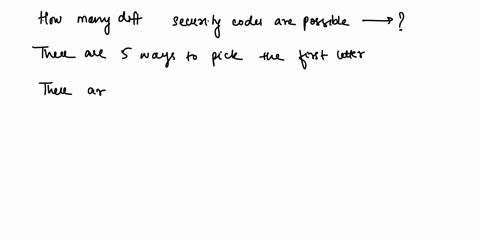 How many diff security codes are possible → ?
There are 5 ways to pick the first letter
There ar